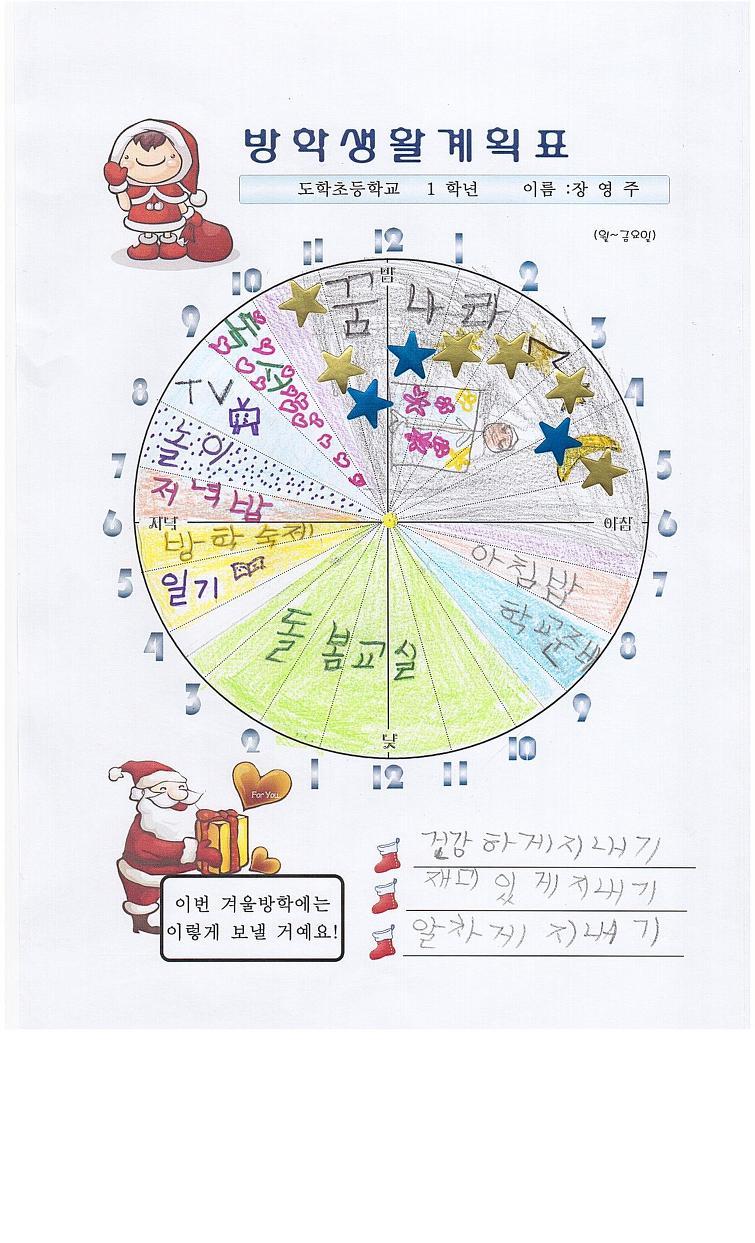 방학생활계획표
도학초등학교 1 학년 이름 :장 영 주
(월~금요일)
11 12 1
10 2
9 3
8 4
7 5
6 6
5 7
4 8
3 9
2 10
1 12 11
밤
꿈 나 라
독서
TV
놀이
저녁밥
저녁
아침
방학 숙제
일기
아침밥
학교준비
돌봄교실
낮
For You
이번 겨울방학에는
이렇게 보낼 거예요!
건강 하게 지내기
재미 있 게 지내기
알차게 지내기